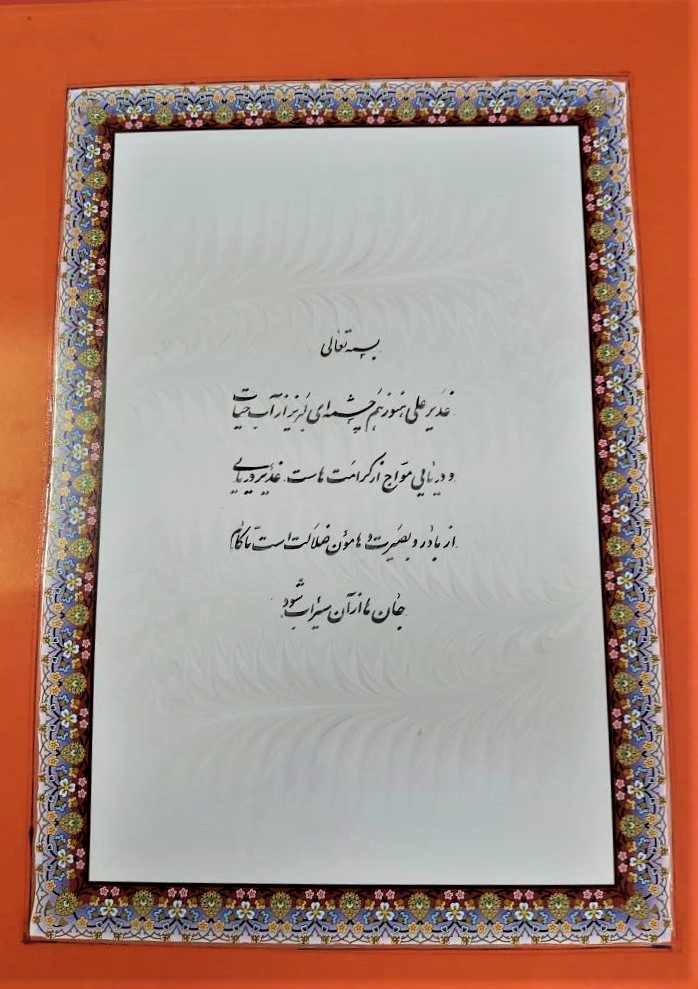 بسمه تعالی
غدیر علی هنوز هم چشمه‌ای لبریز از آب حیات
و دریایی مواج از کرامت هاست. غدیر دریایی
از باور و بصیرت در هامون ضلالت است تا کام
جان ها از آن سیراب شود